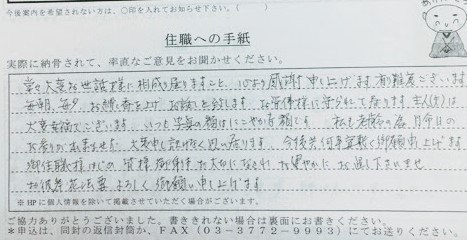 今後案内を希望されない方は、○印を入れてお知らせ下さい。（　　）
住職への手紙
実際に納骨されて、率直なご意見をお聞かせください。
常々大変お世話様に相成り居りますこと、心より感謝申し上げます 有難度ございます
毎朝、毎夕、お線香を上げ お詣りを致します。お釈様に守られて居ります 主人は
大変幸福でございます。いつも写真の顔はにこやかな顔です。私も老齢の為 月命日の
お詣りが出来ません。大変申し訳なく思い居ります 今後共何卒宜敷く御願申上げます
御住職様はじめ 皆様 御身体お大切になされ お健やかに お過し下さいませ
お彼岸花法要 よろしく御願い申し上げます
※HPに個人情報を除いて掲載させていただく場合がございます。
ご協力ありがとうございました。書ききれない場合は裏面にお書きください。
*申込は、同封の返信封筒か、FAX（03-3772-9993）にてお送りください。